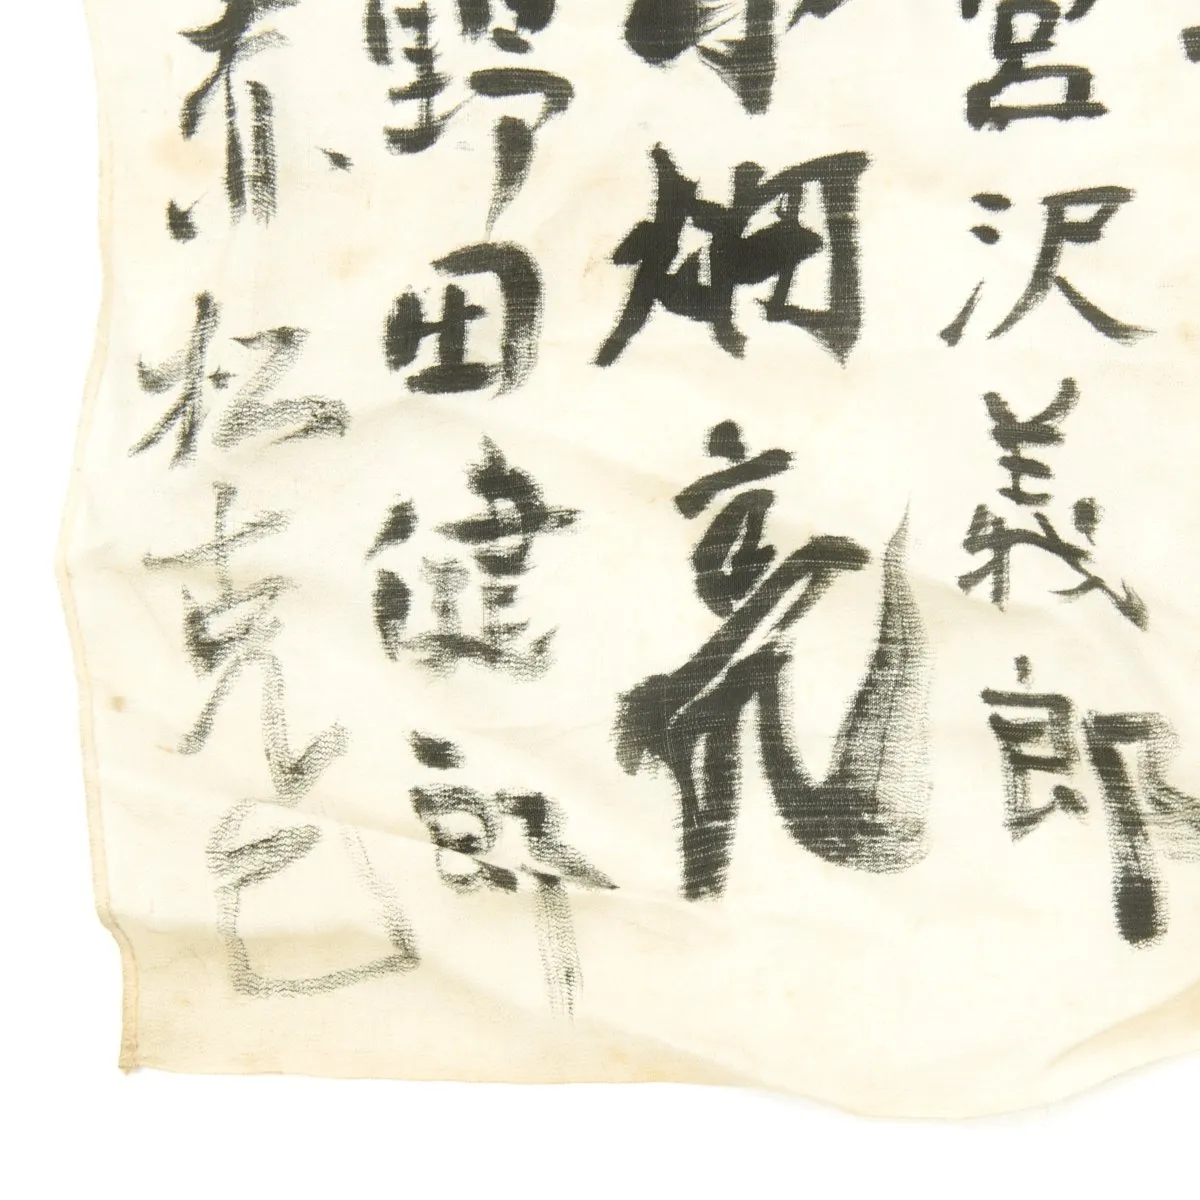 宮沢義郎
畑亮
野田健郎
赤松克己